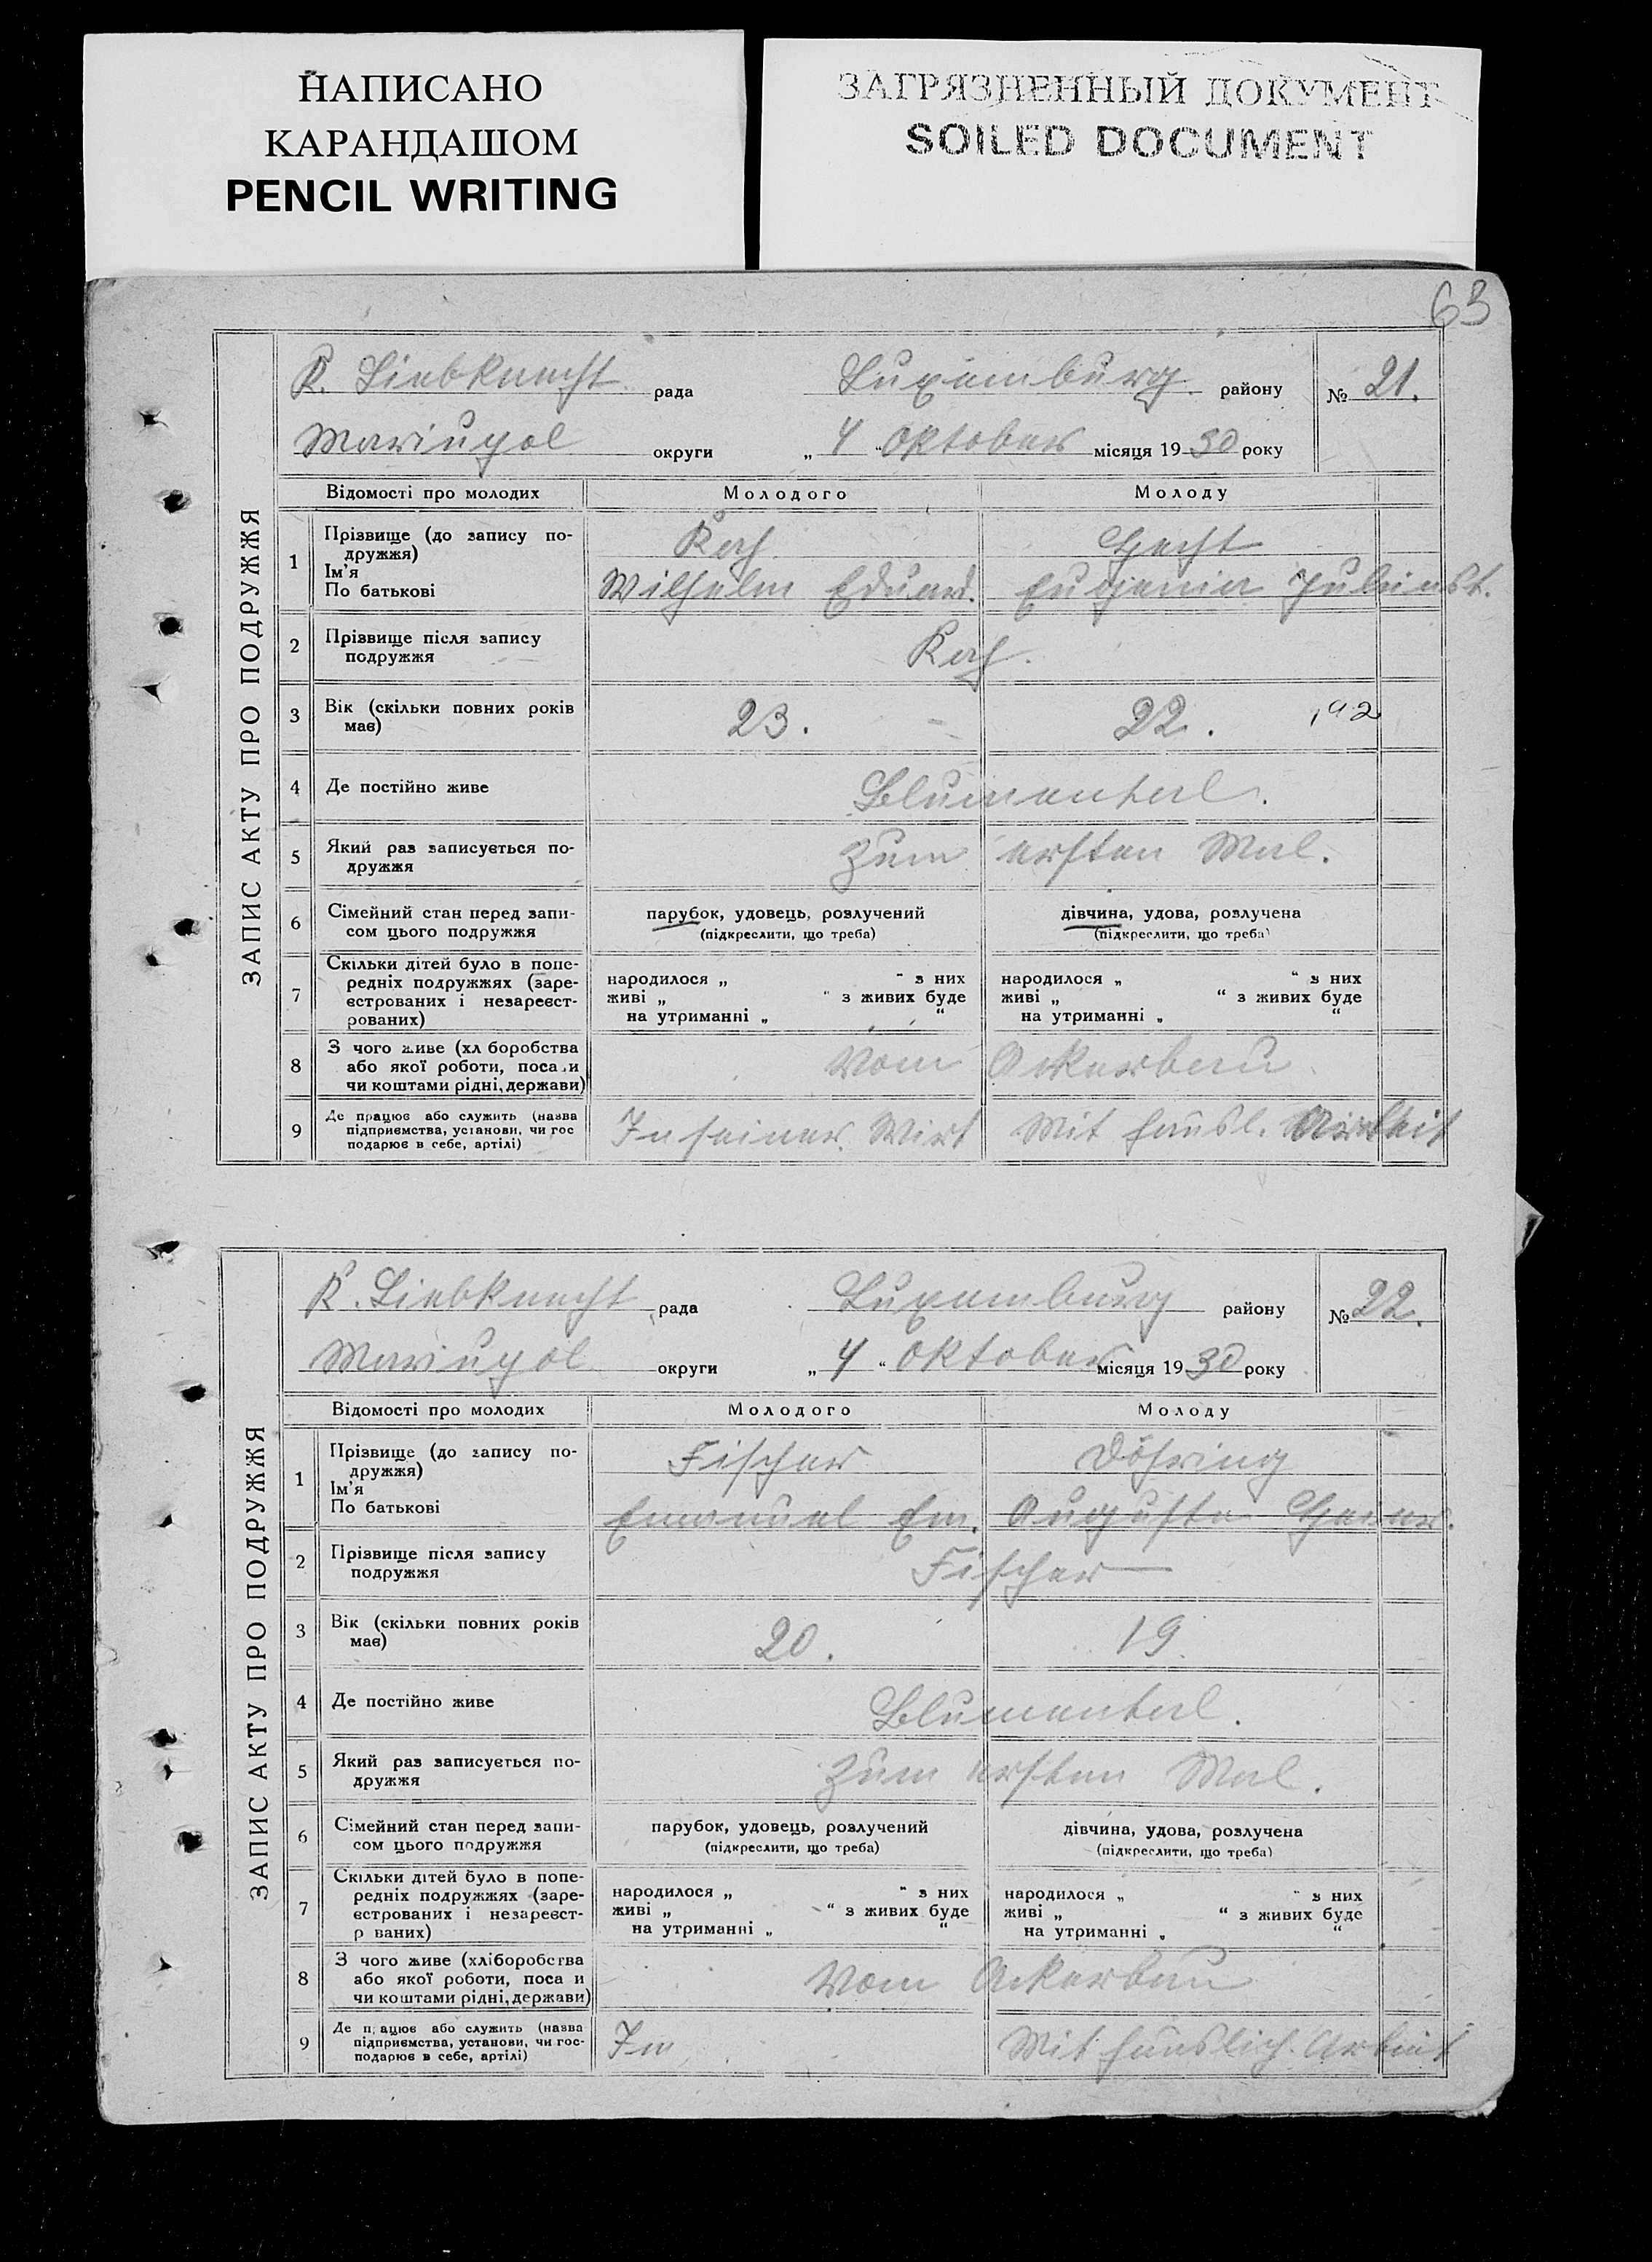 НАПИСАНО
КАРАНДАШОМ
PENCIL WRITING
ЗАГРЯЗНЕННЫЙ ДОКУМЕНТ
SOILED DOCUMENT
63
ЗАПИС АКТУ ПРО ПОДРУЖЖЯ
K. Liebknecht рада Luxemburg району № 21.
Mariupol округи „ 4 “ Oktober місяця 19 30 року
Відомості про молодих Молодого Молоду
1 Прізвище (до запису по-
дружжя) Koch Hecht
Ім’я
По батькові Wilhelm Eduard. Eugenia
2 Прізвище після запису
подружжя Koch.
3 Вік (скільки повних років
має) 23. 22. 192
4 Де постійно живе Blumental.
5 Який раз записується по-
дружжя Zum ersten Mal.
6 Сімейний стан перед запи-
сом цього подружжя
парубок, удовець, розлучений дівчина, удова, розлучена
(підкреслити, що треба) (підкреслити, що треба)
7 Скільки дітей було в попе-
редніх подружжях (заре-
єстрованих і незареєст-
рованих)
народилося „ “ з них народилося „ “ з них
живі „ “ з живих буде живі „ “ з живих буде
на утриманні „ “ на утриманні „ “
8 З чого живе (хл боробства
або якої роботи, посади
чи коштами рідні, держави) Vom Ackerbau
9 Де працює або служить (назва
підприємства, установи, чи гос
подарює в себе, артілі) In seiner Wirt Mit häusl. Arbeit
ЗАПИС АКТУ ПРО ПОДРУЖЖЯ
K. Liebknecht рада Luxemburg району № 22.
Mariupol округи „ 4 “ Oktober місяця 19 30 року
Відомості про молодих Молодого Молоду
1 Прізвище (до запису по-
дружжя) Fischer Döhring
Ім’я
По батькові Emanuel Em. Augusta Heinr.
2 Прізвище після запису
подружжя Fischer
3 Вік (скільки повних років
має) 20. 19.
4 Де постійно живе Blumental.
5 Який раз записується по-
дружжя Zum ersten Mal.
6 Сімейний стан перед запи-
сом цього подружжя
парубок, удовець, розлучений дівчина, удова, розлучена
(підкреслити, що треба) (підкреслити, що треба)
7 Скільки дітей було в попе-
редніх подружжях (заре-
єстрованих і незареєст-
р ваних)
народилося „ “ з них народилося „ “ з них
живі „ “ з живих буде живі „ “ з живих буде
на утриманні „ “ на утриманні „ “
8 З чого живе (хліборобства
або якої роботи, поса и
чи коштами рідні, держави) Vom Ackerbau
9 Де п ацює або служить (назва
підприємства, установи, чи гос-
подарює в себе, артілі) Im Mit häuslich. Arbeit